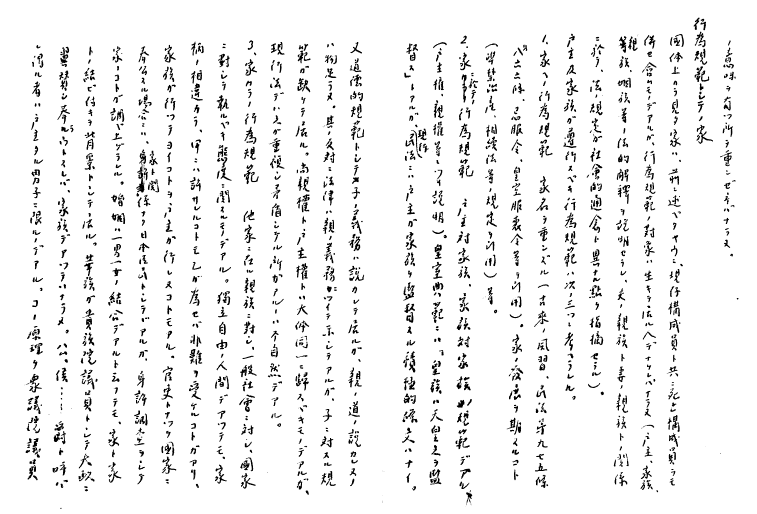 ノ意味ヲ有ツ所ヲ重ンゼネバナラヌ。
行為規範トシテノ家
国体上カラ見タ家ハ、前ニ述ベタヤウニ現存構成員ト共ニ死亡構成員ヲモ
併セ含ムモノデアルガ、行為規範ノ対象ハ生キテ法ル人デナケレバナラヌ(戸主、家族、
親等親、姻族等ノ法的解釈ヲ説明セラレ、夫ノ親族ト妻ノ親族トノ関係
ニ於テ、法ノ規定ガ社会的通念ト異ナル點ヲ指摘セラル)。
戸主及家族ガ遵行スベキ行為規範ハ次ノ三ツト考ヘラレル。
1、家ヘノ行為規範 家名ヲ重ンズル(古来ノ風習、民法第九七五條
八六二條、忌服令、皇室服喪令等ヲ引用)。家ノ発展ヲ期スルコト
(準禁治産、相続法等ノ規定ヲ引用)等。
2、家ニ於テノ行為規範 戸主対家族、家族対家族ノ規範デアル
(戸主権、親権等ニツイ説明)。皇室典範ニハ「皇族ハ天皇之ヲ監
督ス」トアルガ、現行民法ニハ戸主ガ家族ヲ監督スル積極的條文ハナイ。
又道徳的規範トシテハ子ノ義務ハ説カレテ居ルガ、親ノ道ノ説カレヌノ
ハ物足ラヌ。其ノ反対ニ法律ハ親ノ義務ガツイテ示シテアルガ、子ニ対スル規
範ガ缺ケテ居ル。尚親権ト戸主権トハ大体同一ニ帰スベキモノデアルガ、
現行法デハ之ガ重複シ矛盾シタル所ガアルノハ不自然デアル。
3、家カラノ行為規範 他家ニ在ル親族ニ対シ、一般社会ニ対シ、国家
ニ対シテ執ルベキ態度ニ関スルモノデアル。独立自由ノ人間デアツテモ、家
柄ノ相違カラ、甲ニハ許サレルコトモ乙ガ為セバ非難ヲ受ケルコトガアリ、
家族ガ行ツテヨイコトヲ戸主ガ行ヘヌコトモアル。官吏トナツテ国家ニ
奉公スル場合ニハ、家ト関係ナク日本臣民トシテデアルガ、身許調査ヲシテ
家ノコトガ調ベ上ゲラレル。婚姻ハ一男一女ノ結合デアルト云フテモ、家ト家
トノ結ビ付キヲ背景トシテ居ル。華族ガ貴族院議員トシテ大政ニ
翼賛シ奉ラウトスレバ、家族デアツテハナラヌ。公、侯……爵ト呼バ
レ得ル者ハ戸主タル男子ニ限ルノデアル。コノ原理ヲ衆議院議員